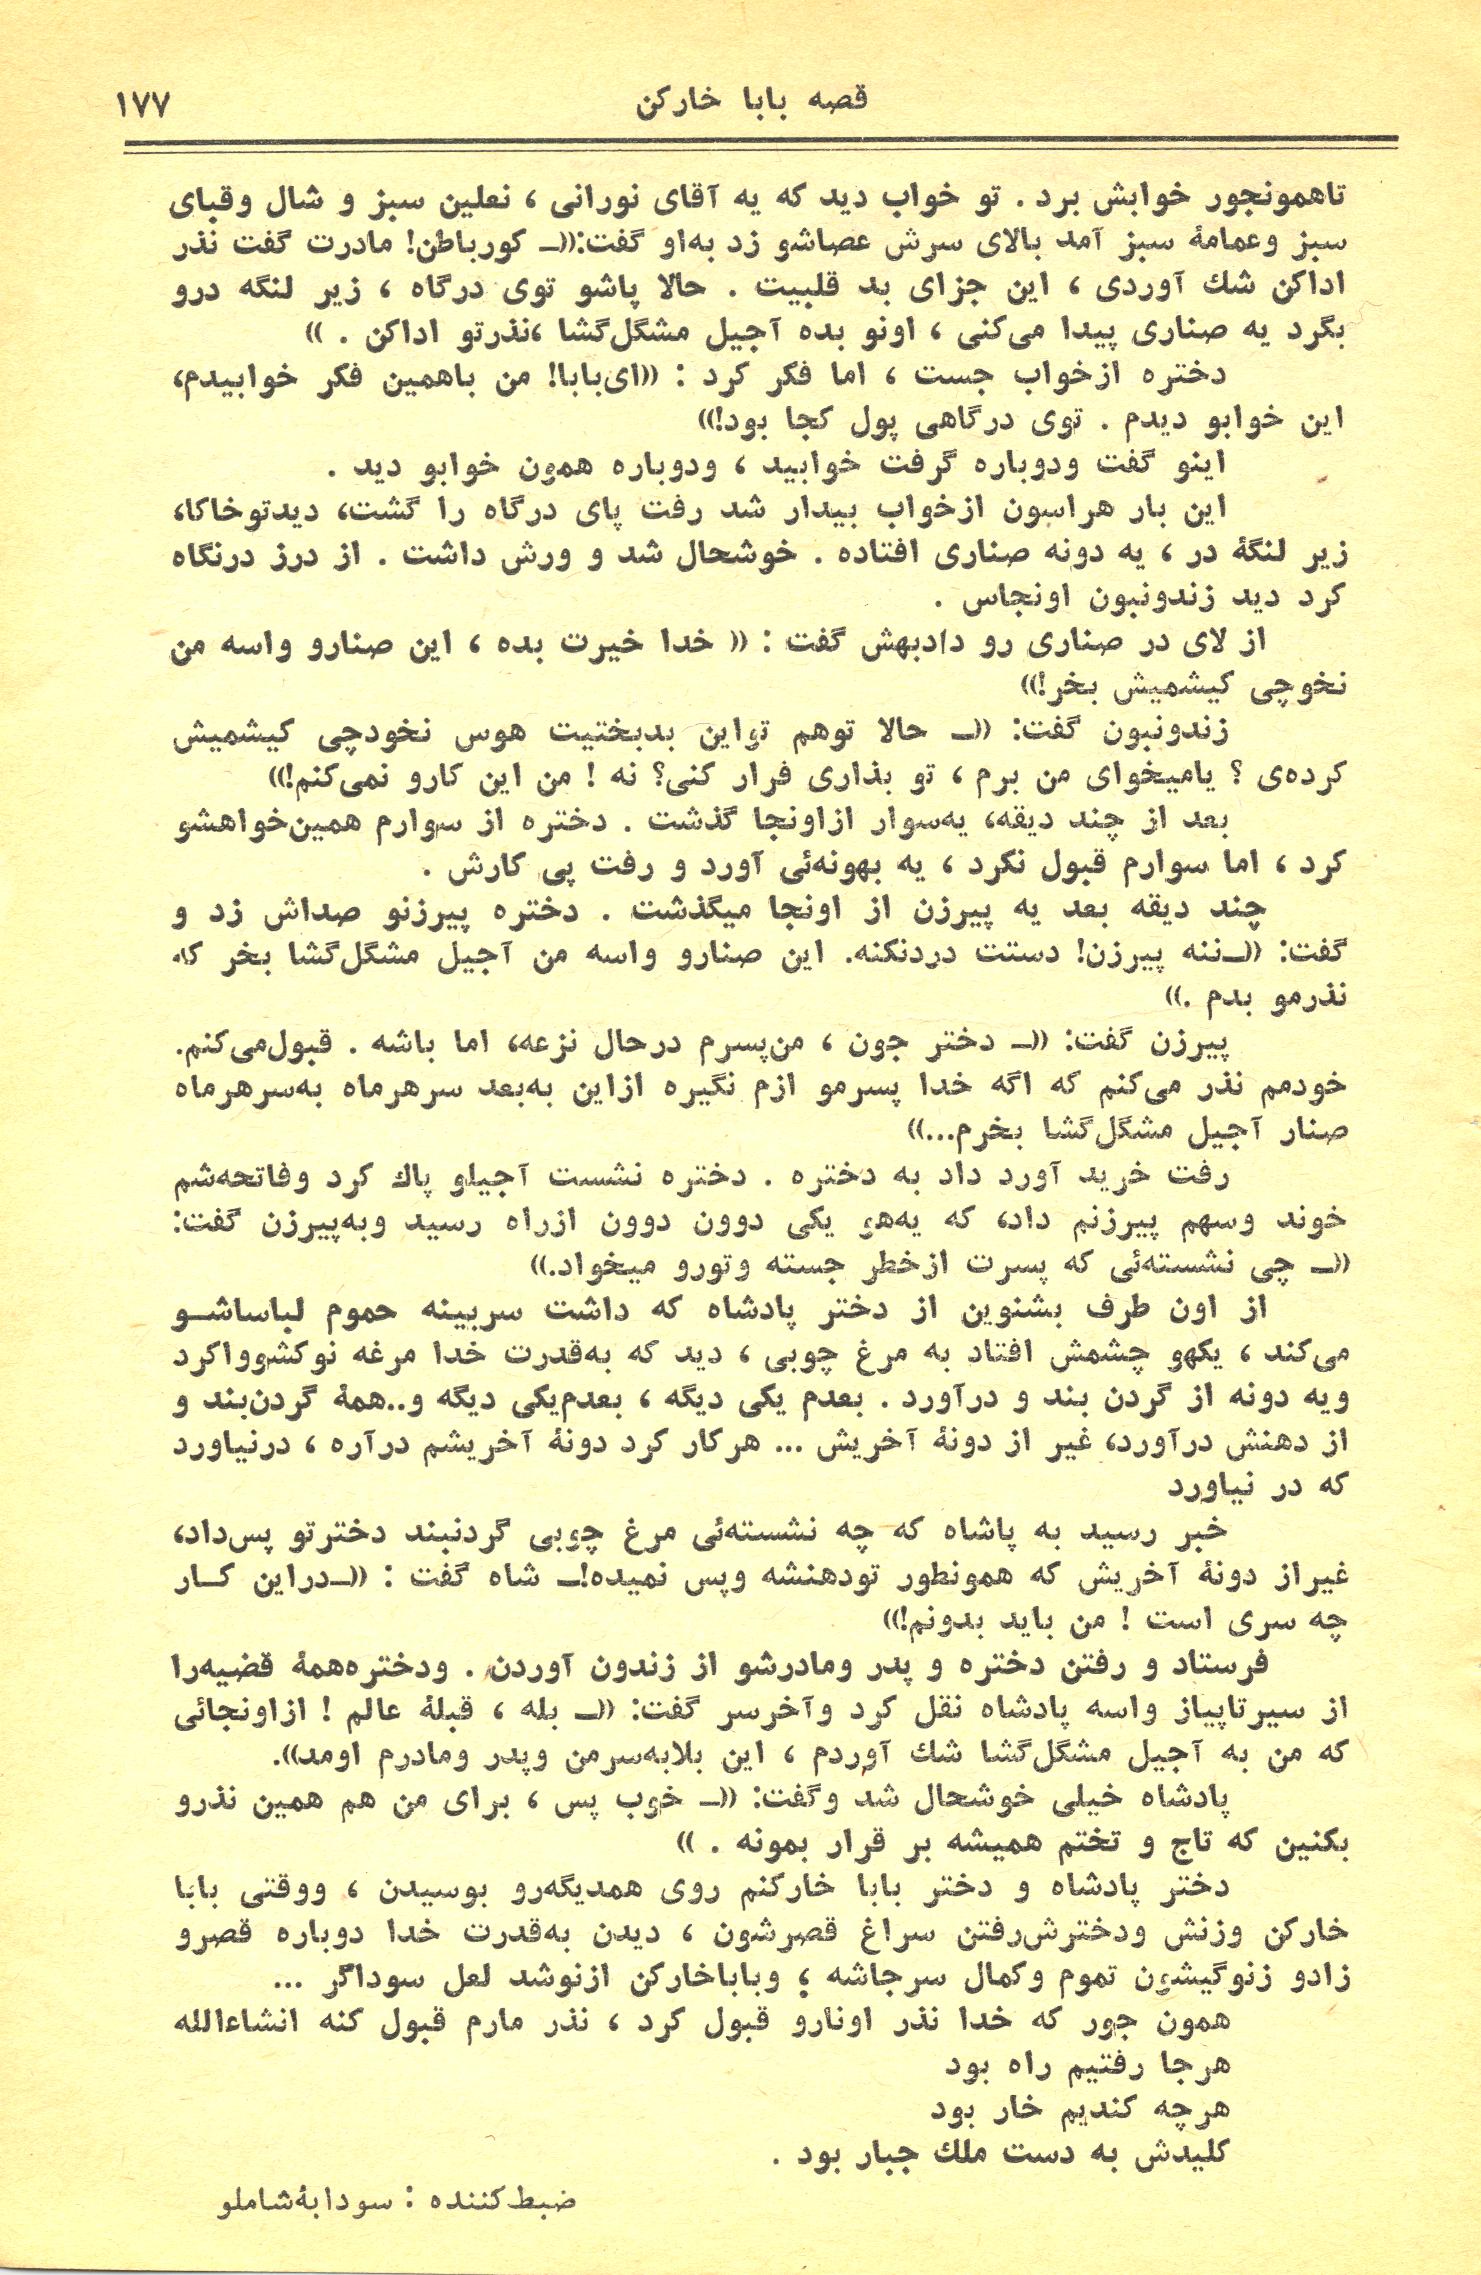 قصه بابا خارکن
۱۷۷
تاهمونجور خوابش برد . تو خواب دید که یه آقای نورانی ، نعلین سبز و شال وقبای
سبز وعمامهٔ سبز آمد بالای سرش عصاشو زد به‌او گفت:((ــ کورباطن! مادرت گفت نذر
اداکن شك آوردی ، این جزای بد قلبیت . حالا پاشو توی درگاه ، زیر لنگه درو
بگرد یه صناری پیدا می‌کنی ، اونو بده آجیل مشگل‌گشا ،نذرتو اداکن . ))
دختره ازخواب جست ، اما فکر کرد : ((ای‌بابا! من باهمین فکر خوابیدم،
این خوابو دیدم . توی درگاهی پول کجا بود!))
اینو گفت ودوباره گرفت خوابید ، ودوباره همون خوابو دید .
این بار هراسون ازخواب بیدار شد رفت پای درگاه را گشت، دیدتوخاکا،
زیر لنگهٔ در ، یه دونه صناری افتاده . خوشحال شد و ورش داشت . از درز درنگاه
کرد دید زندونبون اونجاس .
از لای در صناری رو دادبهش گفت : (( خدا خیرت بده ، این صنارو واسه من
نخوچی کیشمیش بخر!))
زندونبون گفت: ((ــ حالا توهم تواین بدبختیت هوس نخودچی کیشمیش
کرده‌ی ؟ یامیخوای من برم ، تو بذاری فرار کنی؟ نه ! من این کارو نمی‌کنم!))
بعد از چند دیقه، یه‌سوار ازاونجا گذشت . دختره از سوارم همین‌خواهشو
کرد ، اما سوارم قبول نکرد ، یه بهونه‌ئی آورد و رفت پی کارش .
چند دیقه بعد یه پیرزن از اونجا میگذشت . دختره پیرزنو صداش زد و
گفت: ((ــننه پیرزن! دستت دردنکنه. این صنارو واسه من آجیل مشگل‌گشا بخر که
نذرمو بدم .))
پیرزن گفت: ((ــ دختر جون ، من‌پسرم درحال نزعه، اما باشه . قبول‌می‌کنم.
خودمم نذر می‌کنم که اگه خدا پسرمو ازم نگیره ازاین به‌بعد سرهرماه به‌سرهرماه
صنار آجیل مشگل‌گشا بخرم...))
رفت خرید آورد داد به دختره . دختره نشست آجیلو پاك کرد وفاتحه‌شم
خوند وسهم پیرزنم داد، که یه‌هو یکی دوون دوون ازراه رسید وبه‌پیرزن گفت:
((ــ چی نشسته‌ئی که پسرت ازخطر جسته وتورو میخواد.))
از اون طرف بشنوین از دختر پادشاه که داشت سربینه حموم لباساشــو
می‌کند ، یکهو چشمش افتاد به مرغ چوبی ، دید که به‌قدرت خدا مرغه نوکشوواکرد
ویه دونه از گردن بند و درآورد . بعدم یکی دیگه ، بعدم‌یکی دیگه و..همهٔ گردن‌بند و
از دهنش درآورد، غیر از دونهٔ آخریش ... هرکار کرد دونهٔ آخریشم درآره ، درنیاورد
که در نیاورد
خبر رسید به پاشاه که چه نشسته‌ئی مرغ چوبی گردنبند دخترتو پس‌داد،
غیراز دونهٔ آخریش که همونطور تودهنشه وپس نمیده!ــ شاه گفت : ((ــدراین کــار
چه سری است ! من باید بدونم!))
فرستاد و رفتن دختره و پدر ومادرشو از زندون آوردن . ودختره‌همهٔ قضیه‌را
از سیرتاپیاز واسه پادشاه نقل کرد وآخرسر گفت: ((ــ بله ، قبلهٔ عالم ! ازاونجائی
که من به آجیل مشگل‌گشا شك آوردم ، این بلابه‌سرمن وپدر ومادرم اومد)).
پادشاه خیلی خوشحال شد وگفت: ((ــ خوب پس ، برای من هم همین نذرو
بکنین که تاج و تختم همیشه بر قرار بمونه . ))
دختر پادشاه و دختر بابا خارکنم روی همدیگه‌رو بوسیدن ، ووقتی بابا
خارکن وزنش ودخترش‌رفتن سراغ قصرشون ، دیدن به‌قدرت خدا دوباره قصرو
زادو زنوگیشون تموم وکمال سرجاشه ؛ وباباخارکن ازنوشد لعل سوداگر ...
همون جور که خدا نذر اونارو قبول کرد ، نذر مارم قبول کنه انشاءالله
هرجا رفتیم راه بود
هرچه کندیم خار بود
کلیدش به دست ملك جبار بود .
ضبط‌کننده : سودابهٔ‌شاملو